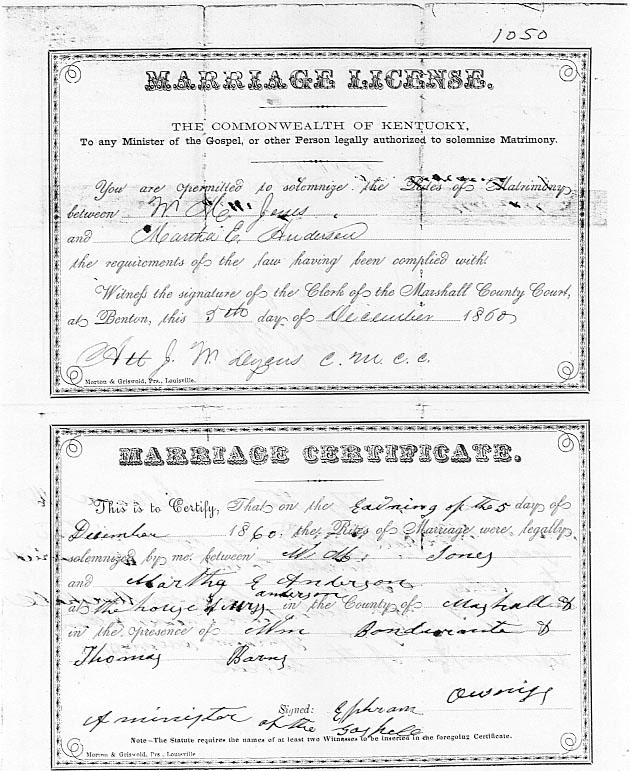 1050
MARRIAGE LICENSE.
THE COMMONWEALTH OF KENTUCKY,
To any Minister of the Gospel, or other Person legally authorized to solemnize Matrimony.
You are permitted to solemnize the Rites of Matrimony
between W M Jones
and Martha E. Anderson
the requirements of the law having been complied with:
Witness the signature of the Clerk of the Marshall County Court,
at Benton, this 5th day of December 1860
Att J. W. C. M. C. C.
Morton & Griswold, Prs., Louisville.
MARRIAGE CERTIFICATE.
This is to Certify, That on the Eavning of the 5 day of
Desember 1860, the Rites of Marriage were legally
solemnized by me between W M Jones
and Martha E Anderson
anderson
at the house of in the County of Marshall &
in the presence of Wm Bondurant &
Thomas Barns
Signed: Ephram Owings
A minister of the Gospell
Note—The Statute requires the names of at least two Witnesses to be inserted in the foregoing Certificate.
Morton & Griswold, Prs., Louisville